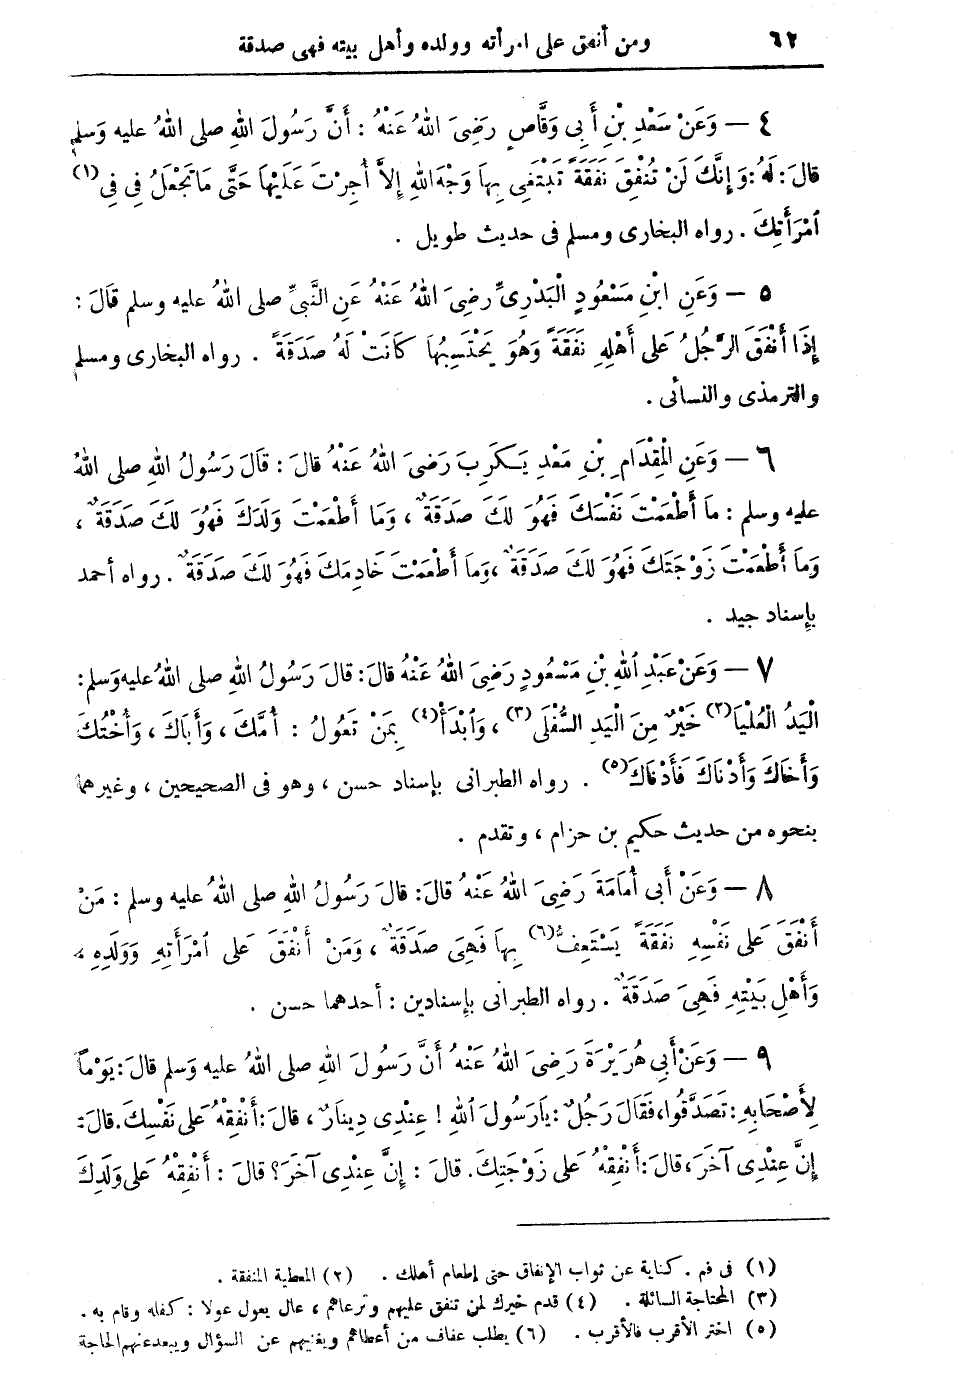 ٦٢ ومن أنفق على امرأته وولده وأهل بيته فهى صدقة
٤ — وَعَنْ سَعْدِ بْنِ أَبِي وَقَّاصٍ رَضِيَ اللهُ عَنْهُ : أَنَّ رَسُولَ اللهِ صلى اللهُ عليه وَسلم
قالَ : لَهُ : وَإِنَّكَ لَنْ تُنْفِقَ نَفَقَةً تَبْتَغِي بِهاَ وَجْهَ اللهِ إِلاَّ أُجِرْتَ عَلَيْهاَ حَتَّى مَا تَجْعَلُ فِي فِي (١)
ٱمْرَأَتِكَ . رواه البخارى ومسلم فى حديث طويل .
٥ — وَعَنِ ابْنِ مَسْعُودٍ الْبَدْرِيِّ رضِيَ اللهُ عَنْهُ عَنِ النَّبِيِّ صلى اللهُ عليه وسلم قَالَ :
إِذَا أَنْفَقَ الرَّجُلُ عَلَى أَهْلِهِ نَفَقَةً وَهُوَ يَحْتَسِبُهاَ كَانَتْ لَهُ صَدَقَةً . رواه البخارى ومسلم
والترمذى والنسائى .
٦ — وَعَنِ الْمِقْدَامِ بْنِ مَعْدِ يـكَرِبَ رَضيَ اللهُ عَنْهُ قالَ : قَالَ رَسُولُ اللهِ صلى اللهُ
عليه وسلم : ماَ أَطْعَمْتَ نَفْسَكَ فَهُوَ لَكَ صَدَقَةٌ ، وَمَا أَطْعَمْتَ وَلَدَكَ فَهُوَ لَكَ صَدَقَةٌ ،
وَماَ أَطْعَمْتَ زَوْجَتَكَ فَهُوَ لَكَ صَدَقَةٌ ، وَماَ أَطْعَمْتَ خَادِمَكَ فَهُوَ لَكَ صَدَقَةٌ . رواه أحمد
بإسناد جيد .
٧ — وَعَنْ عَبْدِ ٱللهِ بْنِ مَسْعُودٍ رَضِيَ اللهُ عَنْهُ قالَ : قالَ رَسُولُ اللهِ صلى اللهُ عليه وَسلم :
الْيَدُ الْعُلْيَا (٢) خَيْرٌ مِنَ الْيَدِ السُّفْلَى (٣) ، وَٱبْدَأْ (٤) بِمَنْ تَعُولُ : أُمَّكَ ، وَأَباَكَ ، وَأُخْتَكَ
وَأَخَاكَ وَأَدْناَكَ فَأَدْناَكَ (٥) . رواه الطبرانى بإسناد حسن ، وهو فى الصحيحين ، وغيرهما
بنحوه من حديث حكيم بن حزام ، وتقدم .
٨ — وَعَنْ أَبى أُمَامَةَ رَضِيَ اللهُ عَنْهُ قالَ : قالَ رَسُولُ اللهِ صلى اللهُ عليه وسلم : مَنْ
أَنْفَقَ عَلَى نَفْسِهِ نَفَقَةً يَسْتَعِفُّ (٦) بِهاَ فَهِيَ صَدَقَةٌ ، وَمَنْ أَنْفَقَ عَلَى ٱمْرَأَتِهِ وَوَلَدِهِ ،
وَأَهْلِ بَيْتِهِ فَهِيَ صَدَقَةٌ . رواه الطبرانى بإسنادين : أحدهما حسن .
٩ — وَعَنْ أَبِي هُرَيْرَةَ رَضِيَ اللهُ عَنْهُ أَنَّ رَسُولَ اللهِ صلى اللهُ عليه وَسلم قالَ : يَوْماً
لِأَصْحَابِهِ : تَصَدَّقُوا ، فَقَالَ رَجُلٌ : ياَرَسُولَ ٱللهِ ! عِنْدِى دِينَارٌ ، قالَ : أَنْفِقْهُ عَلَى نَفْسِكَ . قالَ :
إِنَّ عِنْدِى آخَرَ ، قالَ : أَنْفِقْهُ عَلَى زَوْجَتِكَ . قالَ : إِنَّ عِنْدِى آخَرَ ؟ قالَ : أَنْفِقْهُ عَلَى وَلَدِكَ
(١) فى فم . كناية عن ثواب الإنفاق حتى إطعام أهلك . (٢) المعطية المنفقة .
(٣) المحتاجة السائلة . (٤) قدم خيرك لمن تنفق عليهم وترعاهم ، عال يعول عولا : كفله وقام به .
(٥) اختر الأقرب فالأقرب . (٦) يطلب عفاف من أعطاهم ويغنيهم عن السؤال ويبعدعنهم الحاجة